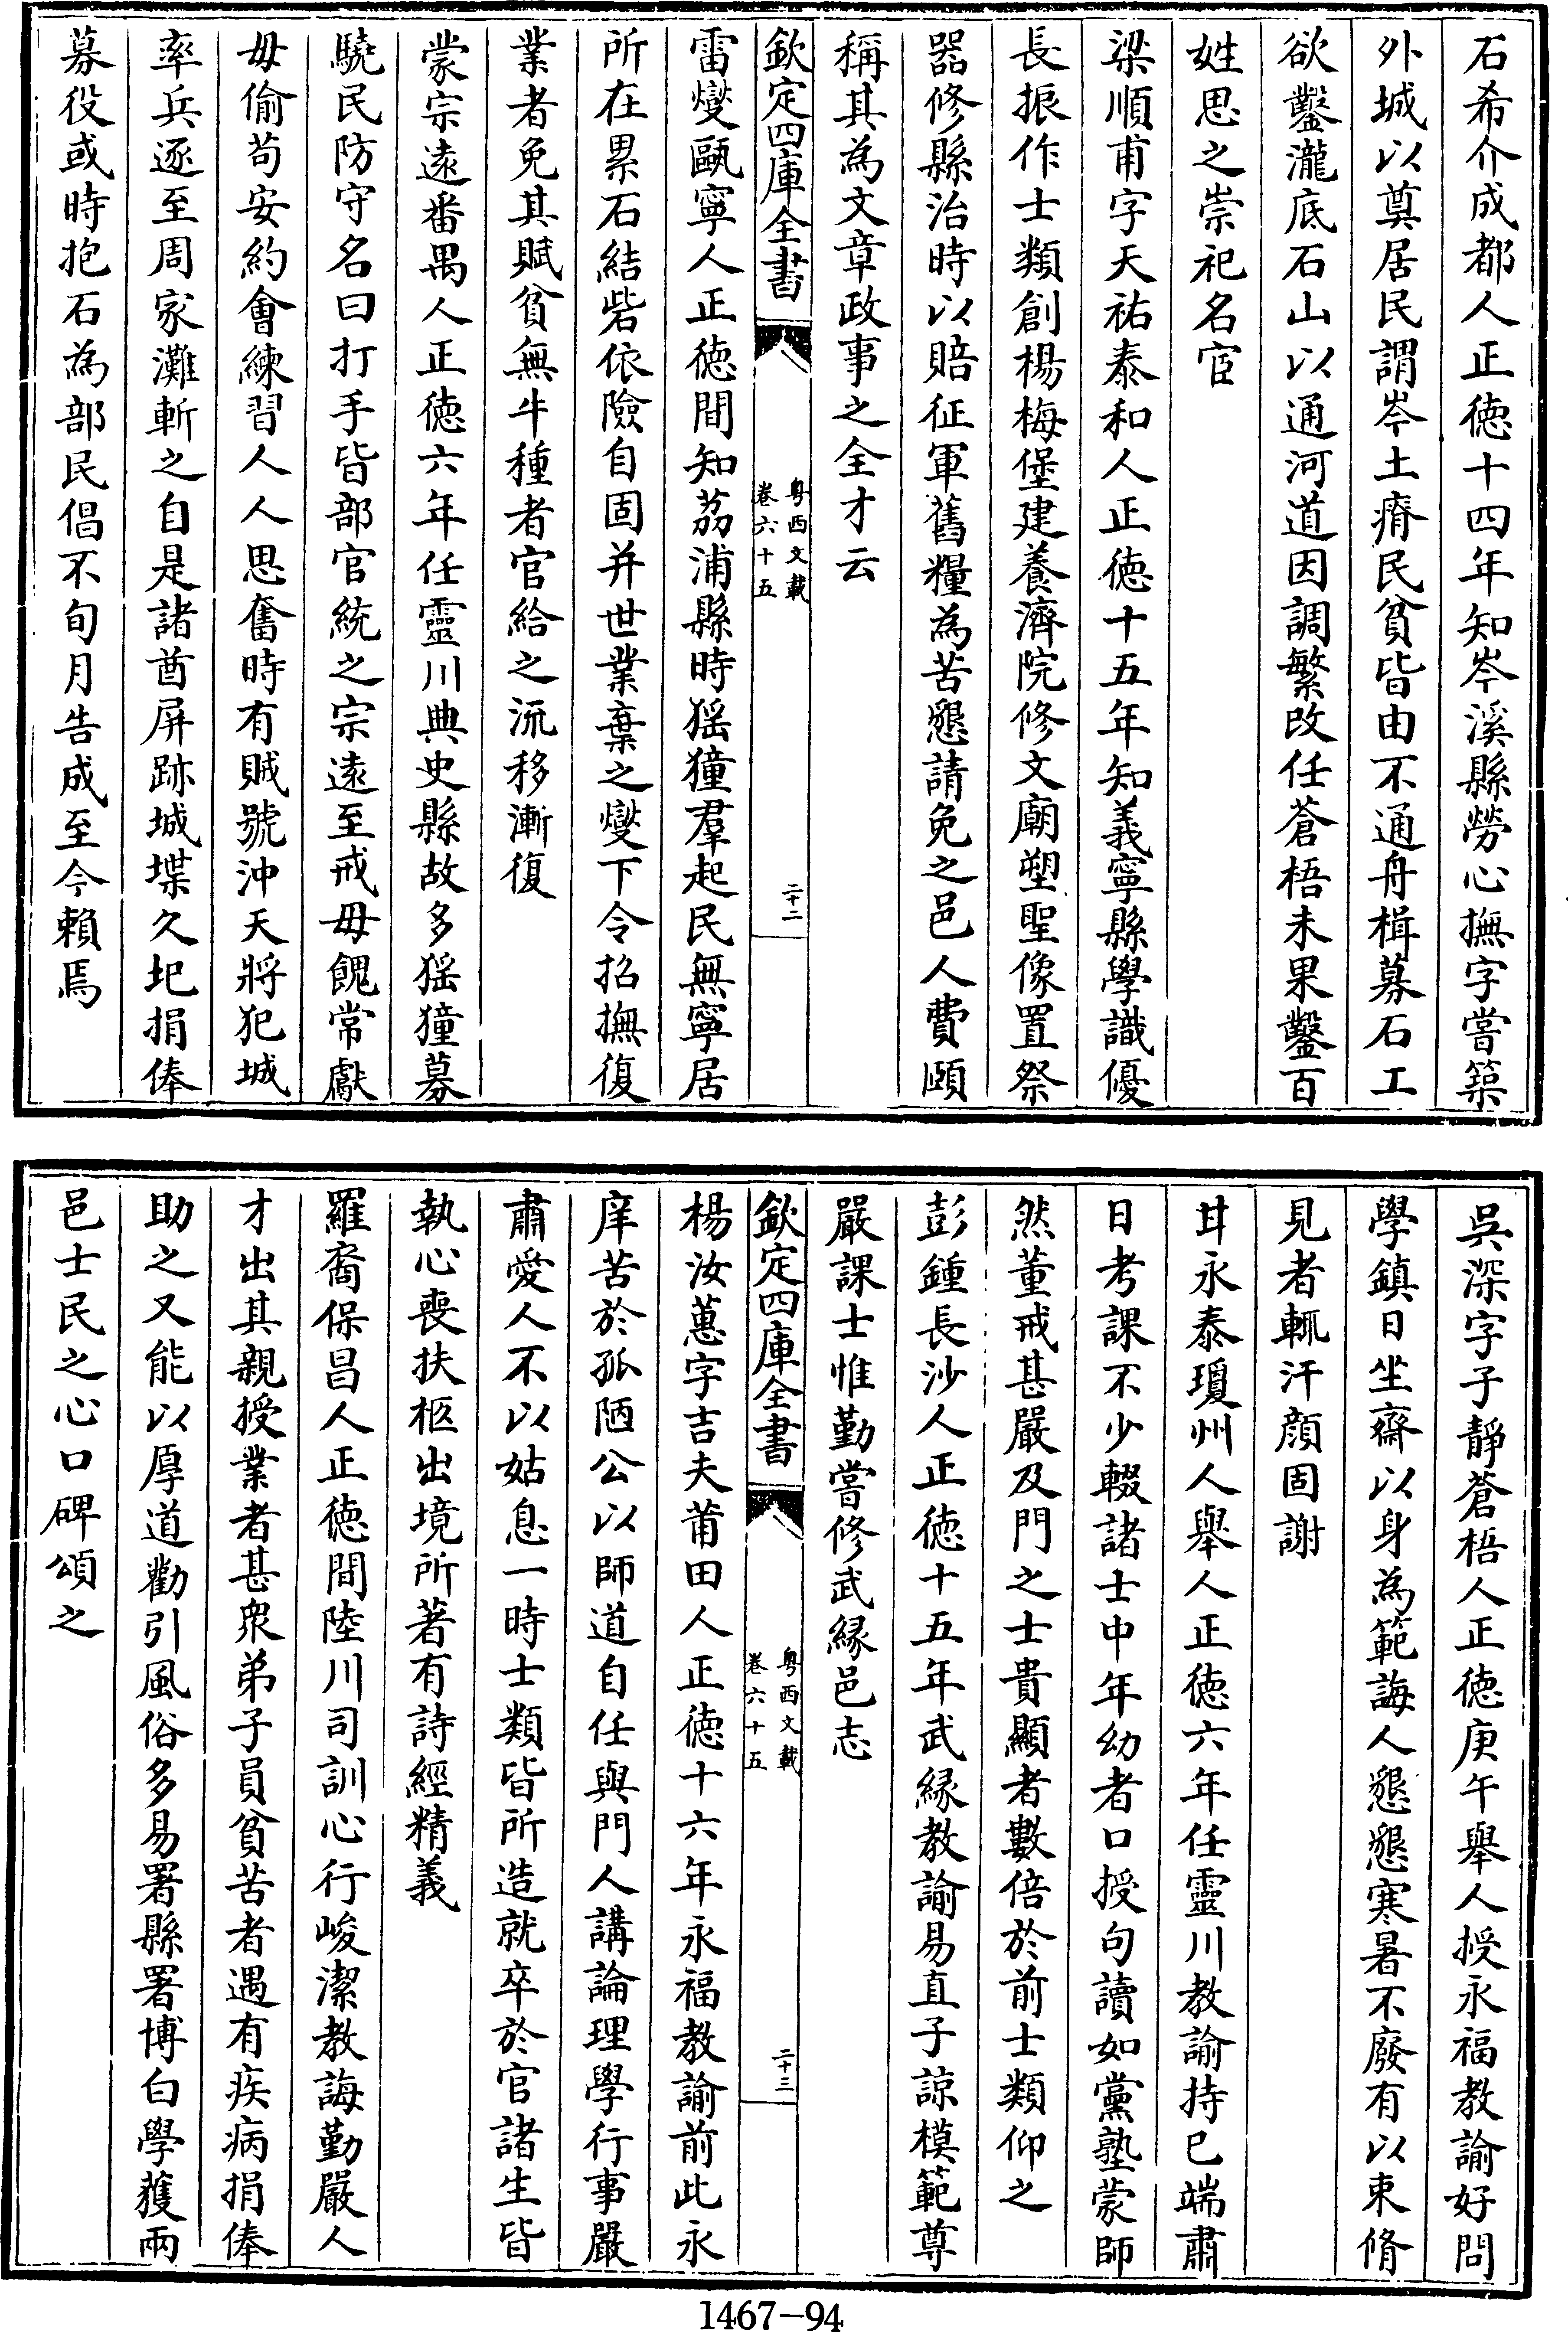 石希介成都人正徳十四年知岑溪縣勞心撫字嘗築
外城以奠居民謂岑土瘠民貧皆由不通舟楫募石工
欲鑿瀧底石山以通河道因調繁改任蒼梧未果鑿百
姓思之崇祀名宦
梁順甫字天祐泰和人正徳十五年知義寧縣學識優
長振作士類創楊梅堡建養濟院修文廟塑聖像置祭
器修縣治時以賠征軍舊糧為苦懇請免之邑人費頤
稱其為文章政事之全才云
欽定四庫全書
粤西文載
卷六十五
二十二
雷燮甌寧人正徳間知荔浦縣時猺獞羣起民無寧居
所在累石結砦依險自固并世業棄之燮下令招撫復
業者免其賦貧無牛種者官給之流移漸復
蒙宗遠番禺人正徳六年任靈川典史縣故多猺獞募
驍民防守名曰打手皆部官統之宗遠至戒毋餽常獻
毋偷苟安約會練習人人思奮時有賊號沖天將犯城
率兵逐至周家灘斬之自是諸酋屏跡城堞久圮捐俸
募役或時抱石為部民倡不旬月告成至今賴焉
吳深字子靜蒼梧人正徳庚午舉人授永福教諭好問
學鎮日坐齋以身為範誨人懇懇寒暑不廢有以束脩
見者輒汗顔固謝
甘永泰瓊州人舉人正徳六年任靈川教諭持己端肅
日考課不少輟諸士中年幼者口授句讀如黨塾蒙師
然董戒甚嚴及門之士貴顯者數倍於前士類仰之
彭鍾長沙人正徳十五年武緣教諭易直子諒模範尊
嚴課士惟勤嘗修武緣邑志
欽定四庫全書
粤西文載
卷六十五
二十三
楊汝蕙字吉夫莆田人正徳十六年永福教諭前此永
庠苦於孤陋公以師道自任與門人講論理學行事嚴
肅愛人不以姑息一時士類皆所造就卒於官諸生皆
執心喪扶柩出境所著有詩經精義
羅裔保昌人正徳間陸川司訓心行峻潔教誨勤嚴人
才出其親授業者甚衆弟子員貧苦者遇有疾病捐俸
助之又能以厚道勸引風俗多易署縣署博白學獲兩
邑士民之心口碑頌之
1467-94